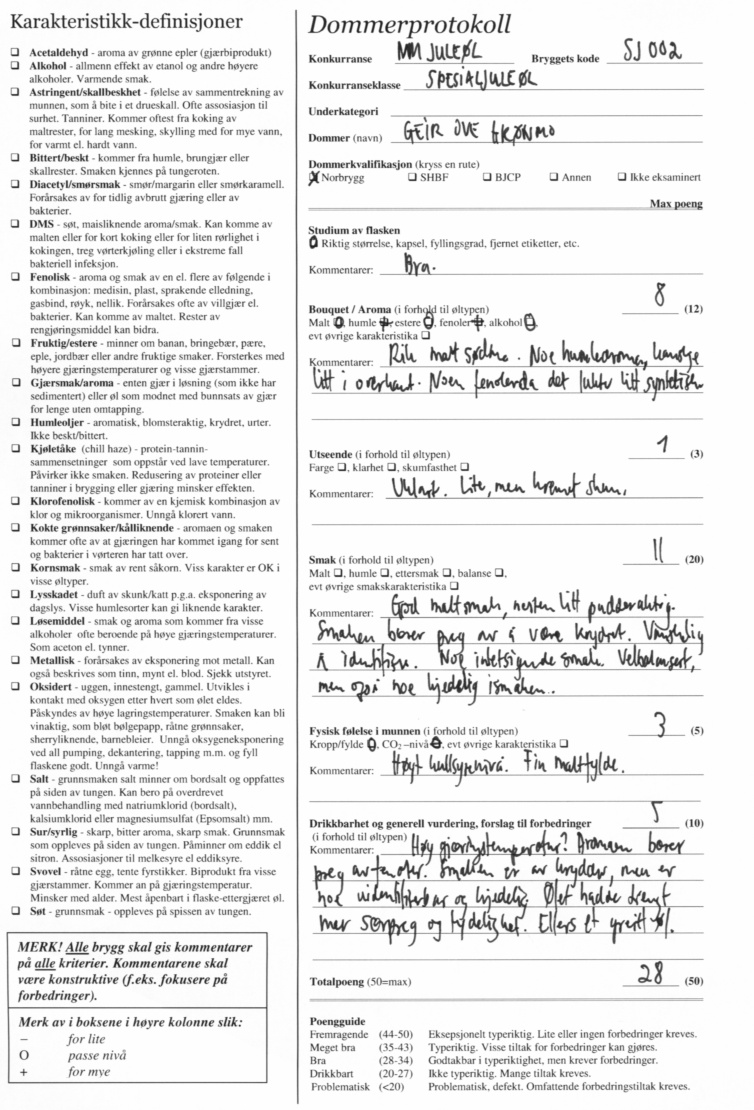 Karakteristikk-definisjoner
❑ Acetaldehyd - aroma av grønne epler (gjærbiprodukt)
❑ Alkohol - allmenn effekt av etanol og andre høyere
alkoholer. Varmende smak.
❑ Astringent/skallbeskhet - følelse av sammentrekning av
munnen, som å bite i et drueskall. Ofte assosiasjon til
surhet. Tanniner. Kommer oftest fra koking av
maltrester, for lang mesking, skylling med for mye vann,
for varmt el. hardt vann.
❑ Bittert/beskt - kommer fra humle, brungjær eller
skallrester. Smaken kjennes på tungeroten.
❑ Diacetyl/smørsmak - smør/margarin eller smørkaramell.
Forårsakes av for tidlig avbrutt gjæring eller av
bakterier.
❑ DMS - søt, maisliknende aroma/smak. Kan komme av
malten eller for kort koking eller for liten rørlighet i
kokingen, treg vørterkjøling eller i ekstreme fall
bakteriell infeksjon.
❑ Fenolisk - aroma og smak av en el. flere av følgende i
kombinasjon: medisin, plast, sprakende elledning,
gasbind, røyk, nellik. Forårsakes ofte av villgjær el.
bakterier. Kan komme av maltet. Rester av
rengjøringsmiddel kan bidra.
❑ Fruktig/estere - minner om banan, bringebær, pære,
eple, jordbær eller andre fruktige smaker. Forsterkes med
høyere gjæringstemperaturer og visse gjærstammer.
❑ Gjærsmak/aroma - enten gjær i løsning (som ikke har
sedimentert) eller øl som modnet med bunnsats av gjær
for lenge uten omtapping.
❑ Humleoljer - aromatisk, blomsteraktig, krydret, urter.
Ikke beskt/bittert.
❑ Kjøletåke (chill haze) - protein-tannin-
sammensetninger som oppstår ved lave temperaturer.
Påvirker ikke smaken. Redusering av proteiner eller
tanniner i brygging eller gjæring minsker effekten.
❑ Klorofenolisk - kommer av en kjemisk kombinasjon av
klor og mikroorganismer. Unngå klorert vann.
❑ Kokte grønnsaker/kålliknende - aromaen og smaken
kommer ofte av at gjæringen har kommet igang for sent
og bakterier i vørteren har tatt over.
❑ Kornsmak - smak av rent såkorn. Viss karakter er OK i
visse øltyper.
❑ Lysskadet - duft av skunk/katt p.g.a. eksponering av
dagslys. Visse humlesorter kan gi liknende karakter.
❑ Løsemiddel - smak og aroma som kommer fra visse
alkoholer ofte beroende på høye gjæringstemperaturer.
Som aceton el. tynner.
❑ Metallisk - forårsakes av eksponering mot metall. Kan
også beskrives som tinn, mynt el. blod. Sjekk utstyret.
❑ Oksidert - uggen, innestengt, gammel. Utvikles i
kontakt med oksygen etter hvert som ølet eldes.
Påskyndes av høye lagringstemperaturer. Smaken kan bli
vinaktig, som bløt bølgepapp, råtne grønnsaker,
sherryliknende, barnebleier. Unngå oksygeneksponering
ved all pumping, dekantering, tapping m.m. og fyll
flaskene godt. Unngå varme!
❑ Salt - grunnsmaken salt minner om bordsalt og oppfattes
på siden av tungen. Kan bero på overdrevet
vannbehandling med natriumklorid (bordsalt),
kalsiumklorid eller magnesiumsulfat (Epsomsalt) mm.
❑ Sur/syrlig - skarp, bitter aroma, skarp smak. Grunnsmak
som oppleves på siden av tungen. Påminner om eddik el
sitron. Assosiasjoner til melkesyre el eddiksyre.
❑ Svovel - råtne egg, tente fyrstikker. Biprodukt fra visse
gjærstammer. Kommer an på gjæringstemperatur.
Minsker med alder. Mest åpenbart i flaske-ettergjæret øl.
❑ Søt - grunnsmak - oppleves på spissen av tungen.
MERK! Alle brygg skal gis kommentarer
på alle kriterier. Kommentarene skal
være konstruktive (f.eks. fokusere på
forbedringer).
Merk av i boksene i høyre kolonne slik:
– for lite
O passe nivå
+ for mye
Dommerprotokoll
Konkurranse MM JULEØL Bryggets kode SJ 002
Konkurranseklasse SPESIALJULEØL
Underkategori
Dommer (navn) GEIR OVE GRØNMO
Dommerkvalifikasjon (kryss en rute)
X Norbrygg ❑ SHBF ❑ BJCP ❑ Annen ❑ Ikke eksaminert
Max poeng
Studium av flasken
O Riktig størrelse, kapsel, fyllingsgrad, fjernet etiketter, etc.
Kommentarer: Bra.
8
Bouquet / Aroma (i forhold til øltypen) (12)
Malt O, humle +, estere O, fenoler +, alkohol O,
evt øvrige karakteristika ❑
Kommentarer: Rik malt sødme. Noe humlearoma, kanskje
litt i overkant. Noen fenoler da det lukter litt syntetisk
1
Utseende (i forhold til øltypen) (3)
Farge ❑, klarhet ❑, skumfasthet ❑
Kommentarer: Uklart. Lite, men kremet skum.
11
Smak (i forhold til øltypen) (20)
Malt ❑, humle ❑, ettersmak ❑, balanse ❑,
evt øvrige smakskarakteristika ❑
Kommentarer: God maltsmak, nesten litt pudderaktig.
Smaken bærer preg av å være krydret. Vanskelig
å identifisere. Noe intetsigende smak. Velbalansert,
men også noe kjedelig i smaken.
3
Fysisk følelse i munnen (i forhold til øltypen) (5)
Kropp/fylde O, CO2 –nivå O, evt øvrige karakteristika ❑
Kommentarer: Høyt kullsyrenivå. Fin maltfylde.
5
Drikkbarhet og generell vurdering, forslag til forbedringer (10)
(i forhold til øltypen)
Kommentarer: Høy gjæringstemperatur? Aromaen bærer
preg av fenoler. Smaken er av krydder, men er
noe uidentifiserbar og kjedelig. Ølet hadde trengt
mer særpreg og tydelighet. Ellers et greit øl.
Totalpoeng (50=max) 28 (50)
Poengguide
Fremragende (44-50) Eksepsjonelt typeriktig. Lite eller ingen forbedringer kreves.
Meget bra (35-43) Typeriktig. Visse tiltak for forbedringer kan gjøres.
Bra (28-34) Godtakbar i typeriktighet, men krever forbedringer.
Drikkbart (20-27) Ikke typeriktig. Mange tiltak kreves.
Problematisk (<20) Problematisk, defekt. Omfattende forbedringstiltak kreves.